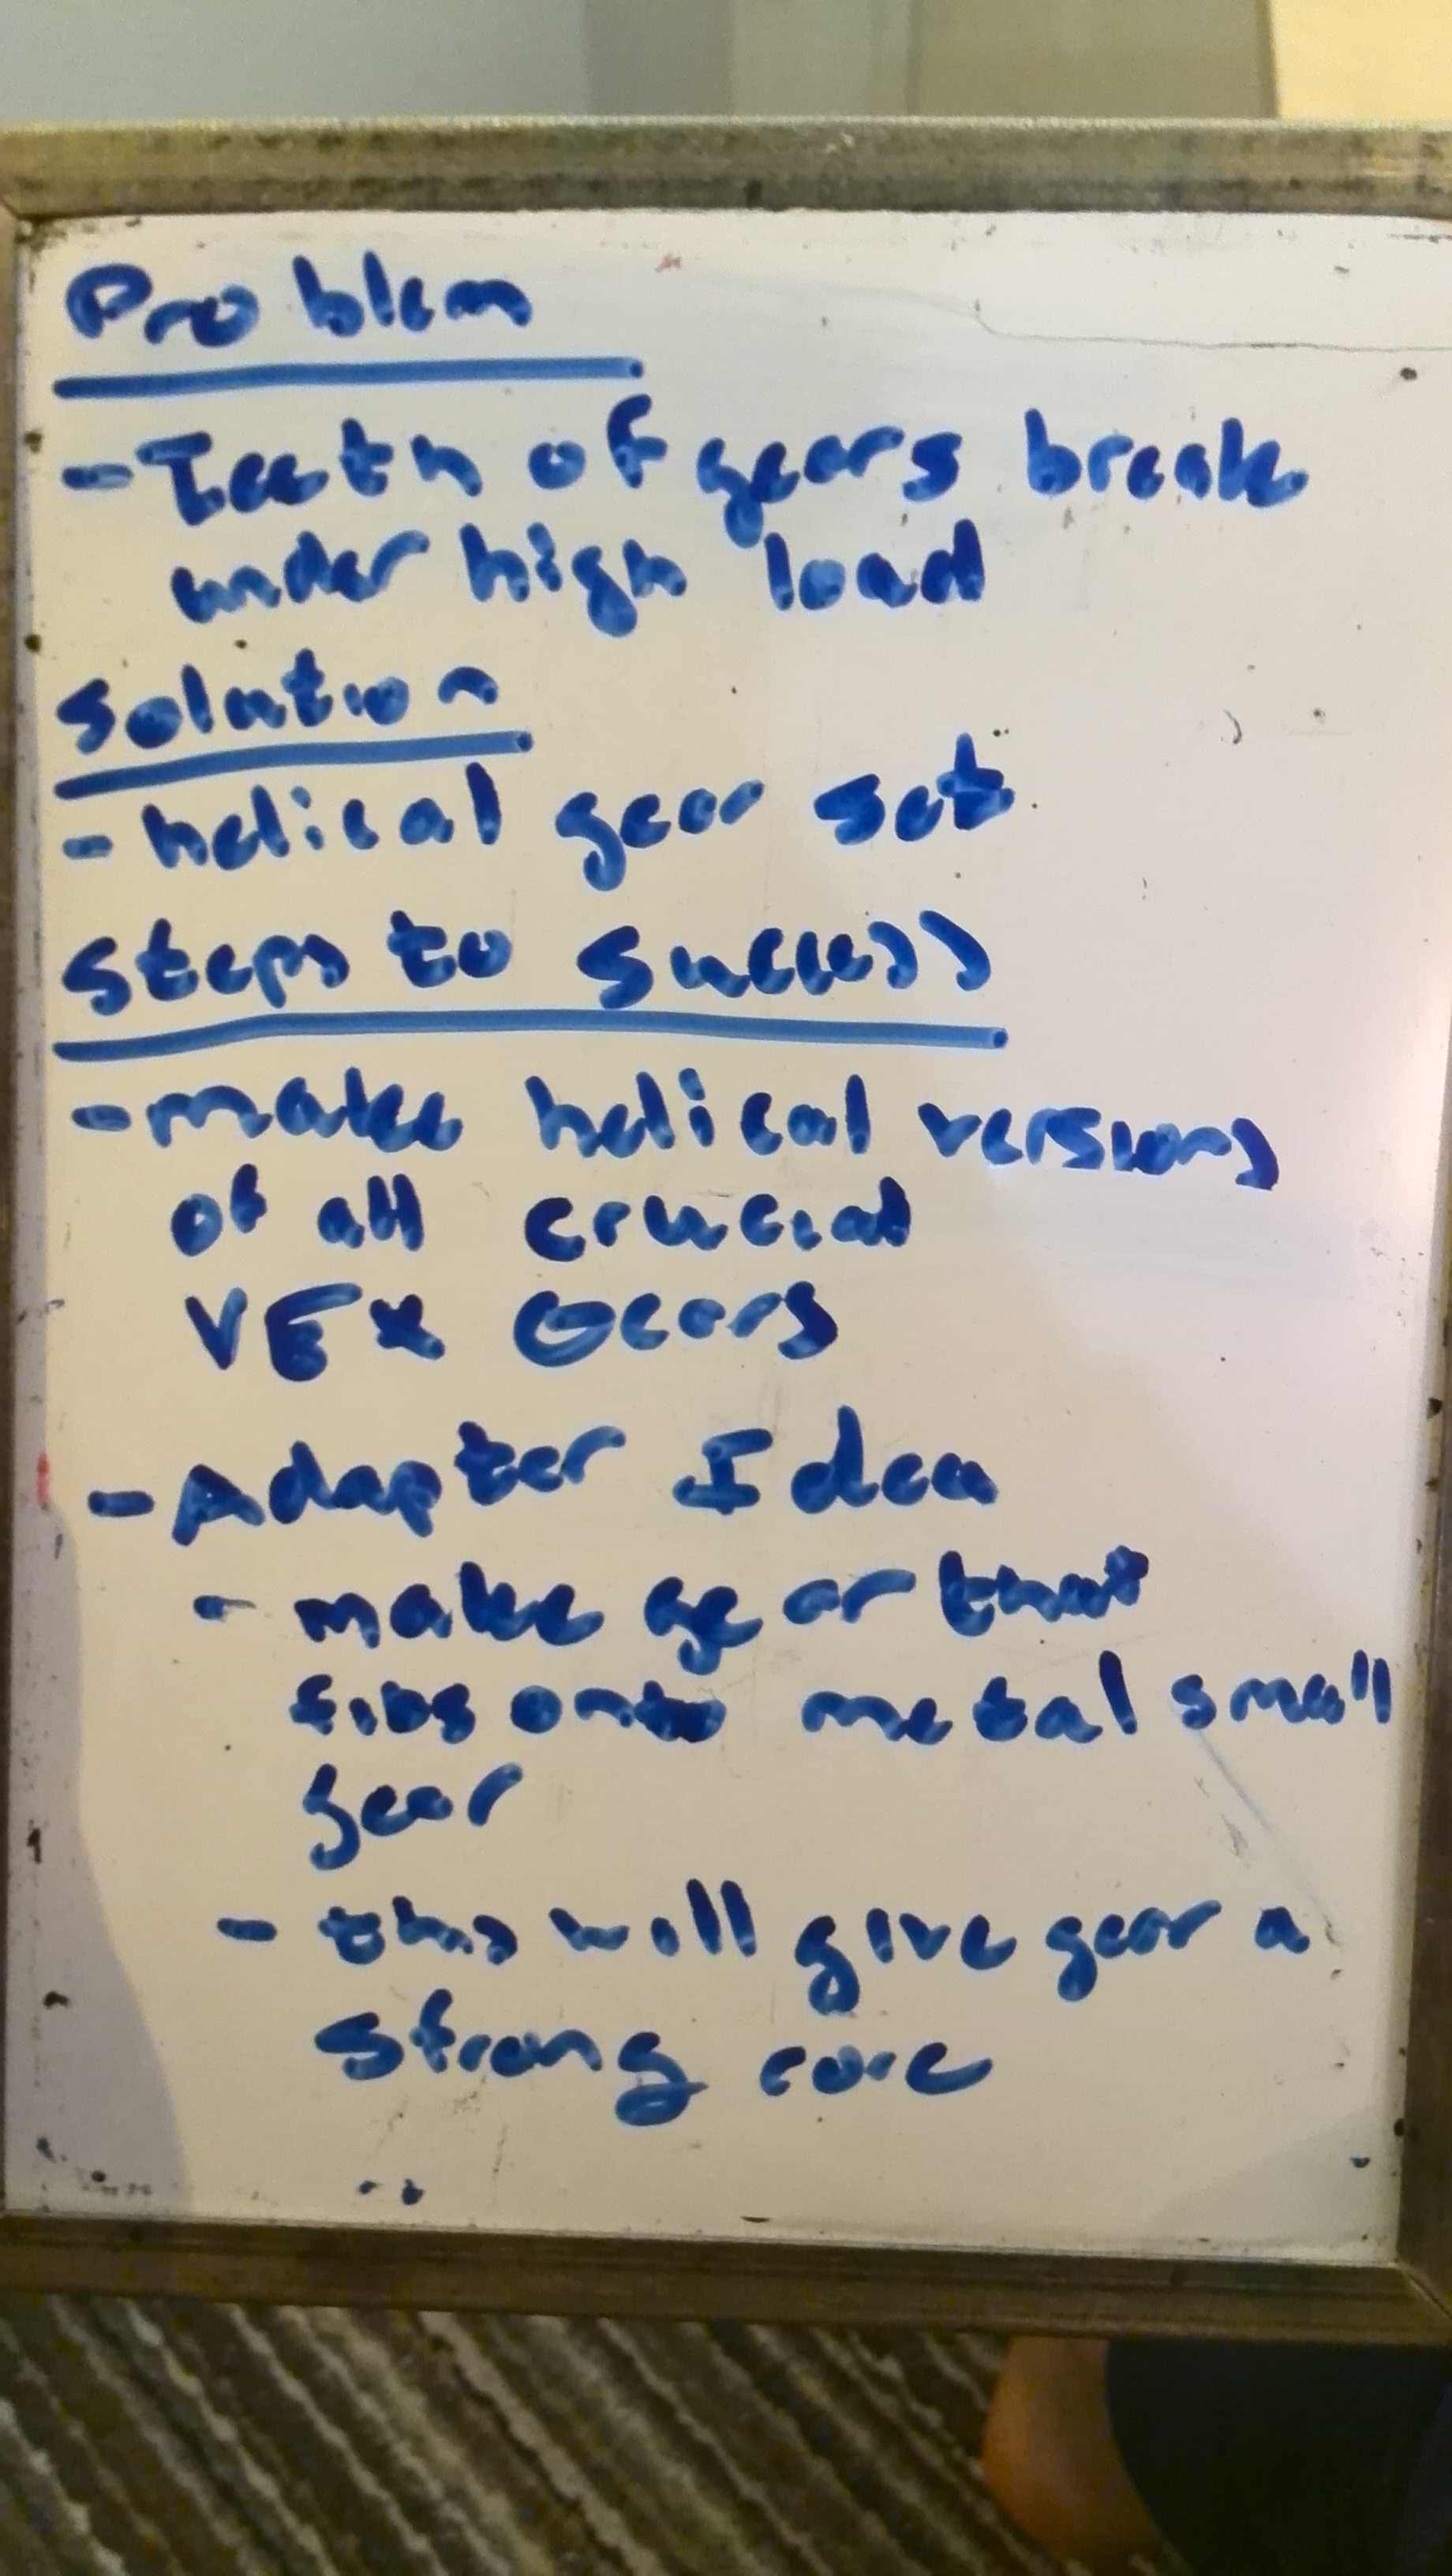 Problem
- Teeth of gears break
under high load
Solution
- helical gear set
Steps to Success
- make helical versions
of all crucial
VEX Gears
- Adapter Idea
- make gear that
fits onto metal small
gear
- this will give gear a
strong core